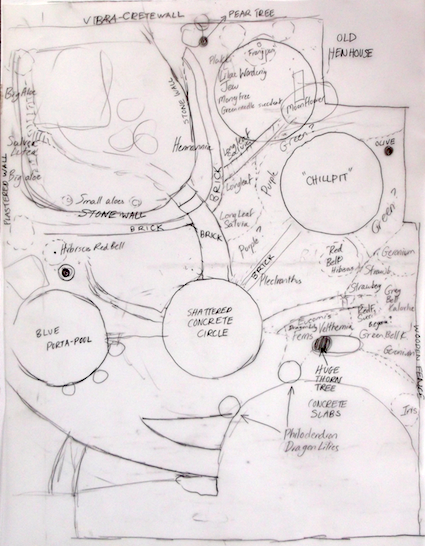 VIBRA-CRETE WALL
PEAR TREE
OLD
HENHOUSE
Big Aloe
STONE WALL
Lilac Wandering
Jew
Moonflower
Hermannia
Long leaf
Salvia
Green?
OLIVE
"CHILLPIT"
Purple
Longleaf
Big aloe
PLASTERED WALL
Small aloes
STONE WALL
BRICK
BRICK
BRICK
Long Leaf
Salvia
Purple?
Green?
BRICK
Hibiscus Red Bell
Plectranthus
Red
Bell
Hibiscus
Geranium
Strawb
Strawbry
Grey
Bell
SHATTERED
CONCRETE
CIRCLE
BLUE
PORTA-POOL
Ferns
Veltheimia
Green Bell K
Geranium
WOODEN FENCE
HUGE
THORN
TREE
CONCRETE
SLABS
Iris
Philodendron
Dragon Lilies